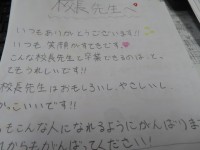 校長先生へ
いつもありがとうございます!!
いつも笑顔がすてきです♥
こんな校長先生と卒業できるのは、
とてもうれしいです!!
校長先生はおもしろいし、やさしいし、
かっこいいです!!
もこんな人になれるようにがんばります
れからもがんばってください!